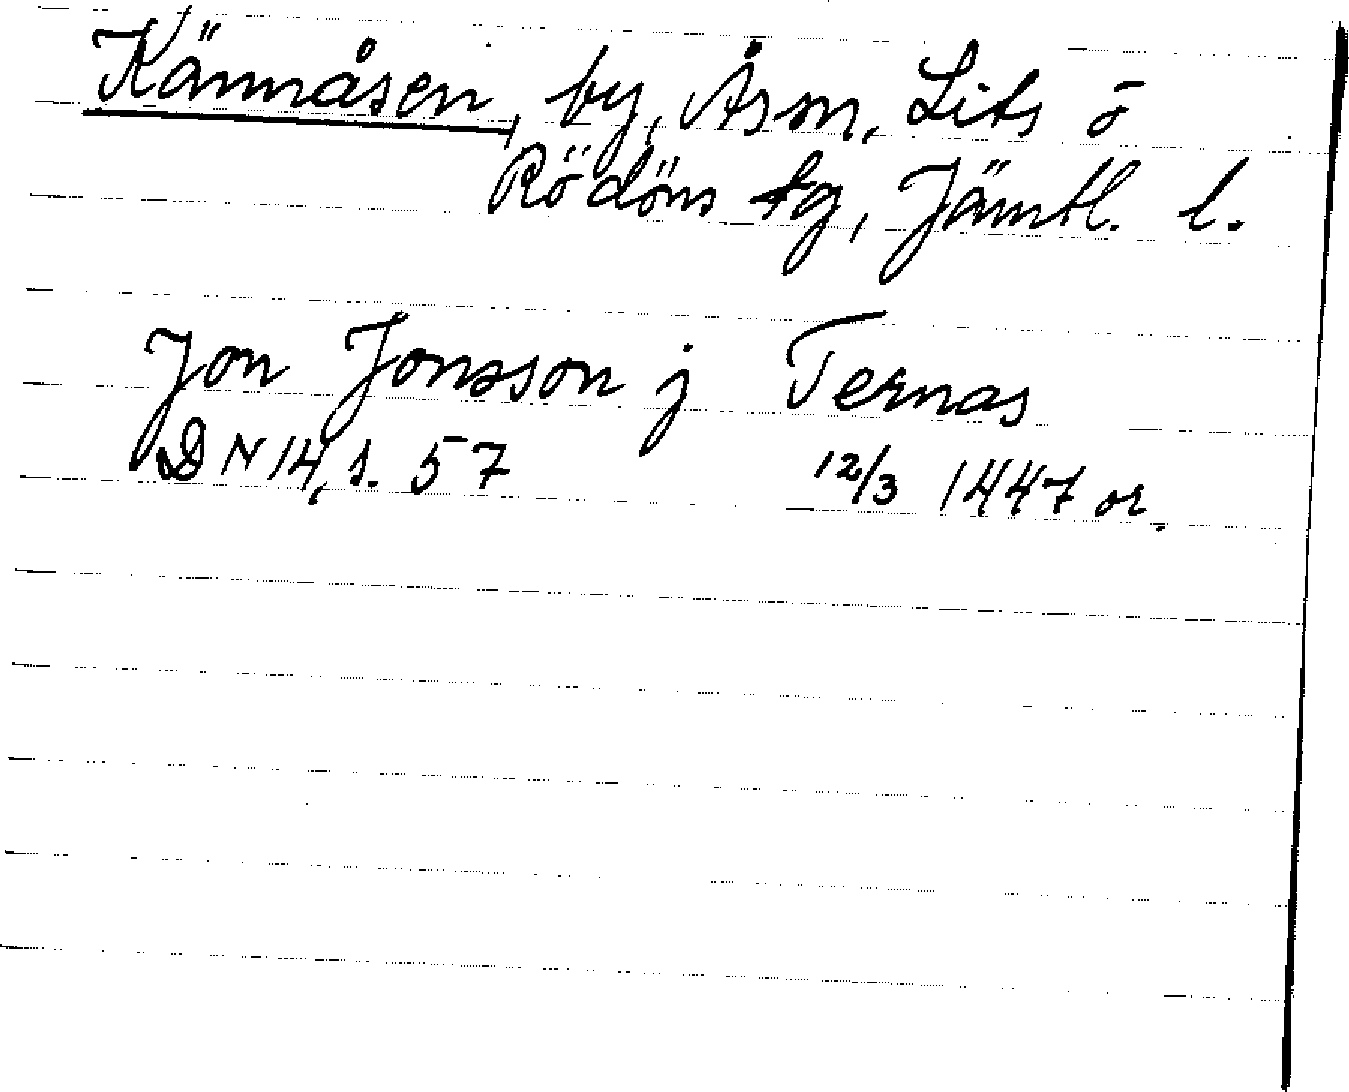 Kännåsen, by, Ås sn, Lits o
Rödöns tg, Jämtl. l.
Jon Jonsson j Ternas
DN 14, s. 57 12/3 1447 or.